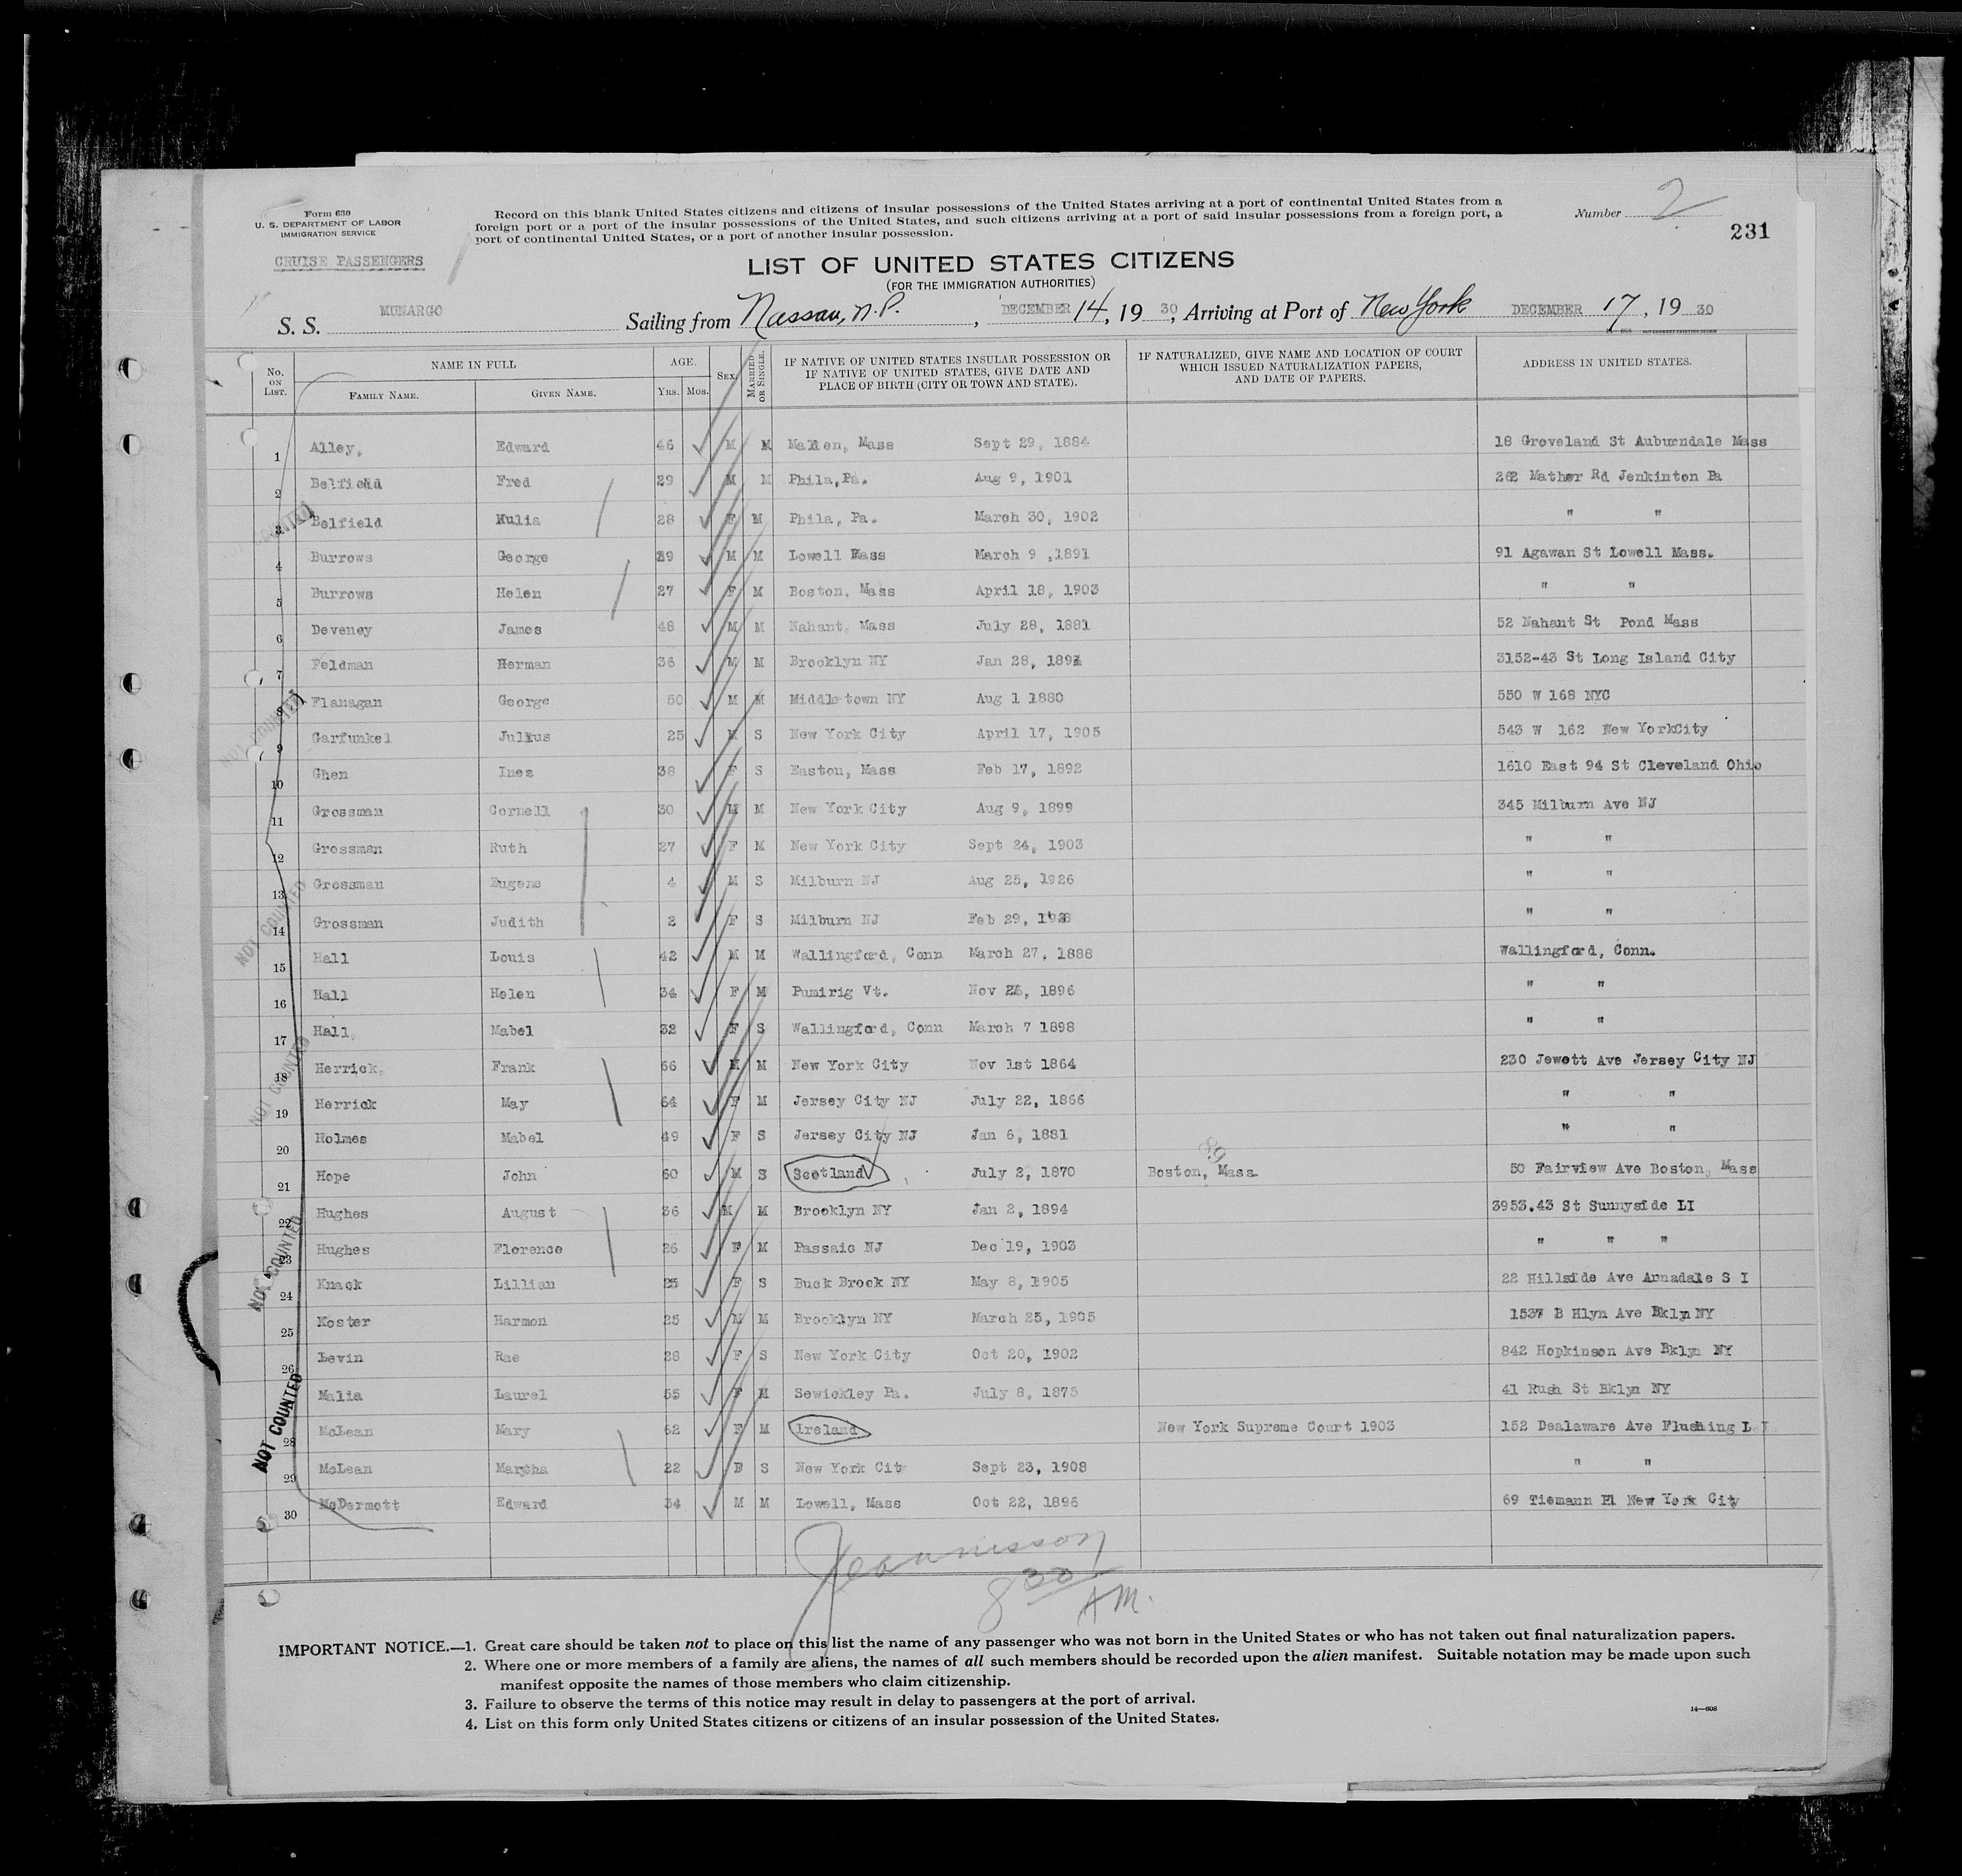 Form 630
U. S. DEPARTMENT OF LABOR
IMMIGRATION SERVICE
CRUISE PASSENGERS
Record on this blank United States citizens and citizens of insular possessions of the United States arriving at a port of continental United States from a
foreign port or a port of the insular possessions of the United States, and such citizens arriving at a port of said insular possessions from a foreign port, a
port of continental United States, or a port of another insular possession.
Number 2
231
LIST OF UNITED STATES CITIZENS
(FOR THE IMMIGRATION AUTHORITIES)
S. S. MUNARGO Sailing from Nassau, N.P. , DECEMBER 14, 19 30, Arriving at Port of New York DECEMBER 17, 19 30
No. ON LIST. NAME IN FULL AGE. SEX MARRIED OR SINGLE. IF NATIVE OF UNITED STATES INSULAR POSSESSION OR IF NATIVE OF UNITED STATES, GIVE DATE AND PLACE OF BIRTH (CITY OR TOWN AND STATE). IF NATURALIZED, GIVE NAME AND LOCATION OF COURT WHICH ISSUED NATURALIZATION PAPERS, AND DATE OF PAPERS. ADDRESS IN UNITED STATES.
FAMILY NAME. GIVEN NAME. YRS. MOS.
1 Alley, Edward 46 M M Malden, Mass Sept 29, 1884 18 Groveland St Auburndale Mass
2 Belfield Fred 29 M M Phila, Pa. Aug 9, 1901 262 Mather Rd Jenkinton Pa
3 Belfield 28 F M Phila, Pa. March 30, 1902 " "
4 Burrows George 39 M M Lowell Mass March 9 ,1891 91 Agawan St Lowell Mass.
5 Burrows Helen 27 F M Boston, Mass April 18, 1903 " "
6 Deveney James 48 M M Nahant, Mass July 28, 1881 52 Nahant St Pond Mass
7 Feldman Herman 36 M M Brooklyn NY Jan 28, 1894 3152-43 St Long Island City
8 Flanagan George 50 M M Middletown NY Aug 1 1880 550 W 168 NYC
9 Garfunkel Julius 25 M S New York City April 17, 1905 543 W 162 New YorkCity
10 Ghen Inez 38 F S Easton, Mass Feb 17, 1892 1610 East 94 St Cleveland Ohio
11 Grossman Cornell 30 M M New York City Aug 9, 1899 345 Milburn Ave NJ
12 Grossman Ruth 27 F M New York City Sept 24, 1903 " "
13 Grossman Eugene 4 M S Milburn NJ Aug 25, 1926 " "
14 Grossman Judith 2 F S Milburn NJ Feb 29, 1928 " "
15 Hall Louis 42 M M Wallingford, Conn March 27, 1888 Wallingford, Conn.
16 Hall Helen 34 F M Pumirig Vt. Nov 1896 " "
17 Hall, Mabel 32 F S Wallingford, Conn March 7 1898 " "
18 Herrick, Frank 66 M M New York City Nov 1st 1864 230 Jewett Ave Jersey City NJ
19 Herrick May 64 F M Jersey City NJ July 22, 1866 " "
20 Holmes Mabel 49 F S Jersey City NJ Jan 6, 1881 " "
21 Hope John 60 M S Scotland July 2, 1870 Boston, Mass. 89 50 Fairview Ave Boston, Mass
22 Hughes August 36 M M Brooklyn NY Jan 2, 1894 3953.43 St Sunnyside LI
23 Hughes Florence 26 F M Passaic NJ Dec 19, 1903 " " "
24 Knack Lillian 25 F S Buck Brook NY May 8, 1905 22 Hillside Ave Annadale S I
25 Koster Harmon 25 M M Brooklyn NY March 25, 1905 1537 B Hlyn Ave Bklyn NY
26 Levin Rae 28 F S New York City Oct 20, 1902 842 Hopkinson Ave Bklyn NY
Malia Laurel 55 F M Sewickley Pa. July 8, 1875 41 Rush St Bklyn NY
28 McLean Mary 62 F M Ireland New York Supreme Court 1903 152 Dealaware Ave Flushing L I
29 McLean Martha 22 F S New York Cit Sept 23, 1908 " "
30 McDermott Edward 34 M M Lowell, Mass Oct 22, 1896 69 Tiemann Pl New York City
NOT COUNTED
NOT COUNTED
NOT COUNTED
NOT COUNTED
NOT COUNTED
NOT COUNTED
8 30 AM.
IMPORTANT NOTICE.—1. Great care should be taken not to place on this list the name of any passenger who was not born in the United States or who has not taken out final naturalization papers.
2. Where one or more members of a family are aliens, the names of all such members should be recorded upon the alien manifest. Suitable notation may be made upon such
manifest opposite the names of those members who claim citizenship.
3. Failure to observe the terms of this notice may result in delay to passengers at the port of arrival.
4. List on this form only United States citizens or citizens of an insular possession of the United States.
14—608